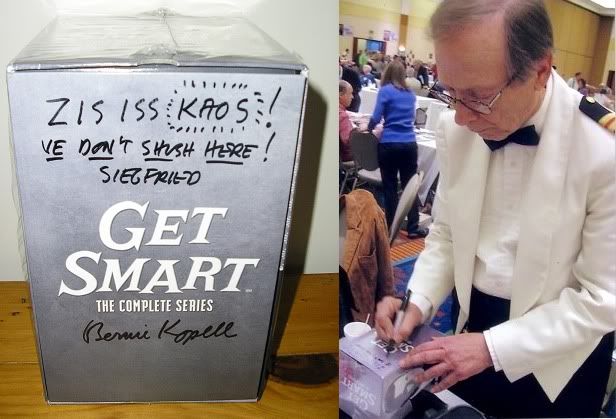 ZIS ISS KAOS!
VE DON'T SHUSH HERE!
SIEGFRIED
GET
SMART
THE COMPLETE SERIES
Bernie Kopell
GET
SMART